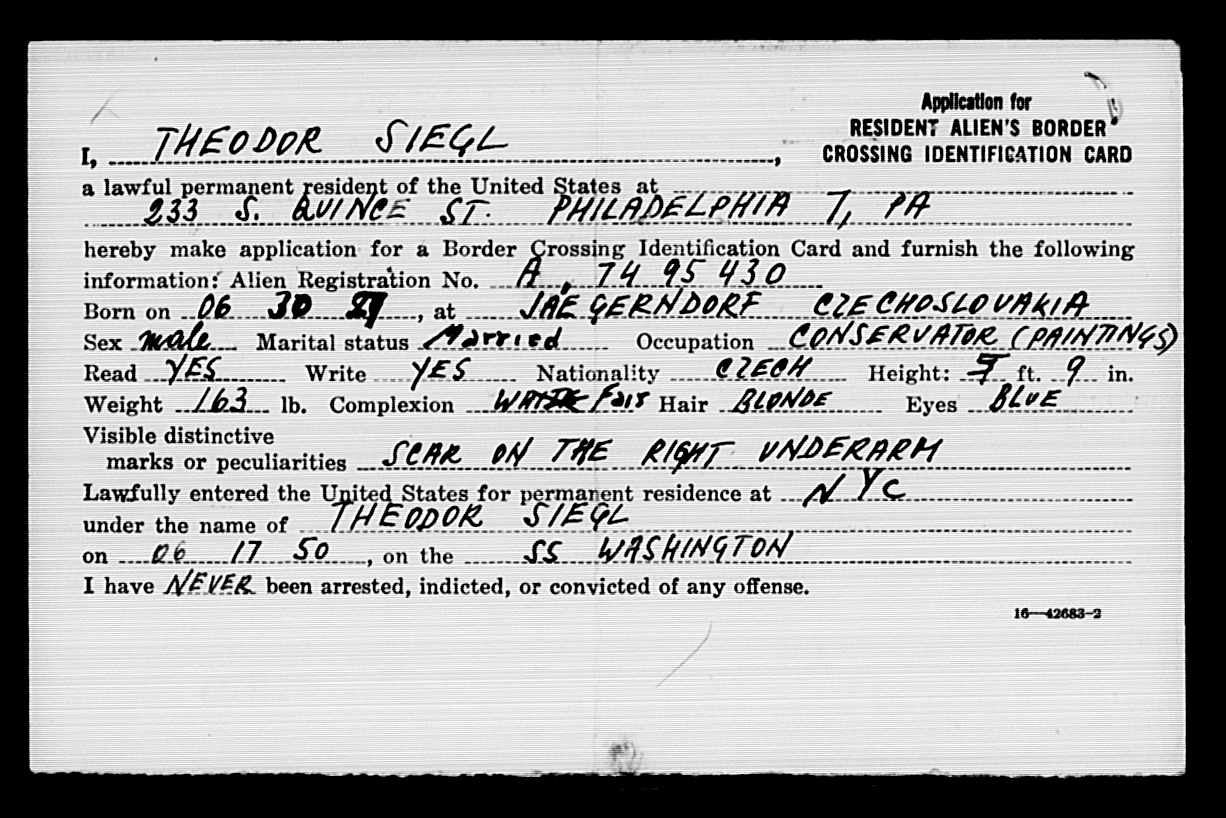 Application for
RESIDENT ALIEN'S BORDER
CROSSING IDENTIFICATION CARD
I, THEODOR SIEGL,
a lawful permanent resident of the United States at
233 S. QUINCE ST. PHILADELPHIA 7, PA
hereby make application for a Border Crossing Identification Card and furnish the following
information: Alien Registration No. A. 74 95 430
Born on 06 30 27, at JAEGERNDORF CZECHOSLOVAKIA
Sex male Marital status Married Occupation CONSERVATOR (PAINTINGS)
Read YES Write YES Nationality CZECH Height: 5 ft. 9 in.
Weight 163 lb. Complexion Fair Hair BLONDE Eyes BLUE
Visible distinctive
marks or peculiarities SCAR ON THE RIGHT UNDERARM
Lawfully entered the United States for permanent residence at NYC
under the name of THEODOR SIEGL
on 06 17 50, on the SS WASHINGTON
I have NEVER been arrested, indicted, or convicted of any offense.
16—42683-2